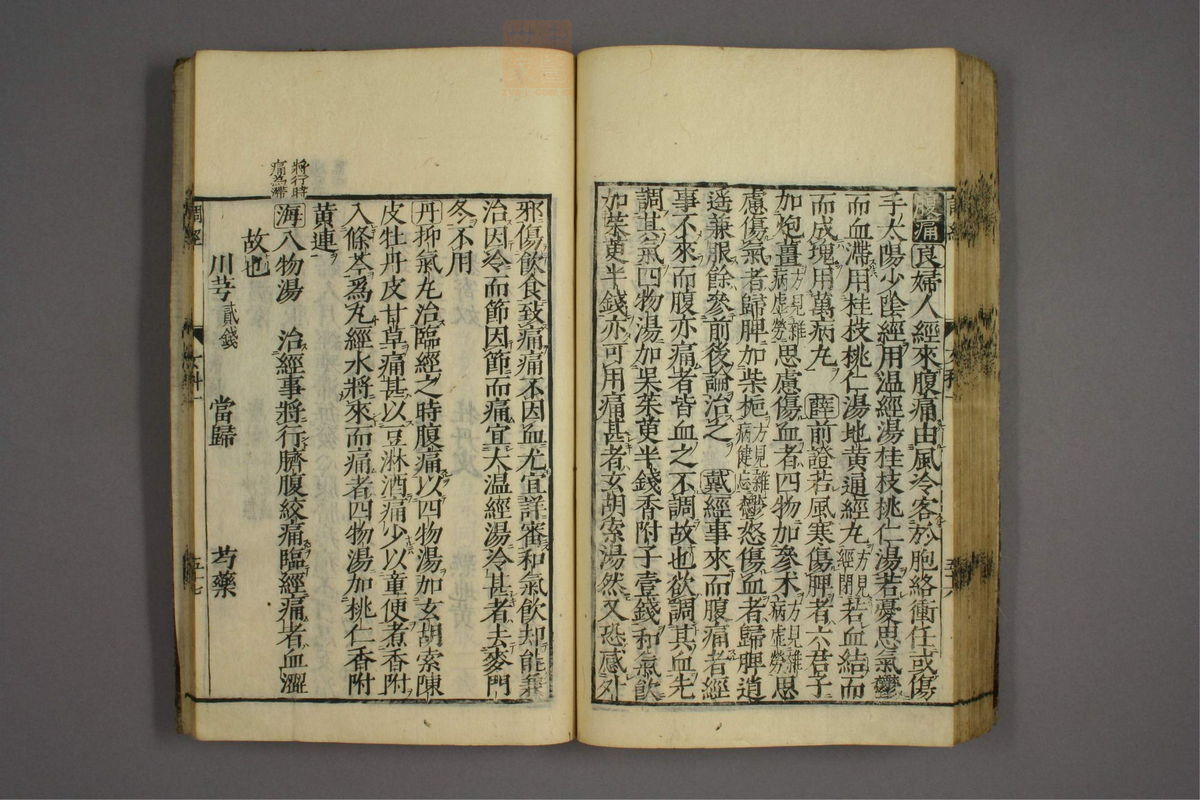 腹痛良婦人經來腹痛由風冷客於胞絡衝任或傷
手太陽少陰經用温經湯桂枝桃仁湯若憂思氣鬱
而血滯用桂枝桃仁湯地黄通經丸方見經閉若血結而
而成塊用萬病丸 薛前證若風寒傷脾者六君子
加炮薑方見雜病虚勞思慮傷血者四物加參术方見雜病虚勞思
慮傷氣者歸脾加柴梔方見雜病健忘鬱怒傷血者歸脾逍
遥兼服餘參前後論治之 戴經事來而腹痛者經
事不來而腹亦痛者皆血之不調故也欲調其血先
調其氣四物湯加吴茱萸半錢香附子壹錢和氣飲
加茱萸半錢亦可用痛甚者玄胡索湯然又恐感外
邪傷飲食致痛痛不因血尤宜詳審和氣飲却能兼
治因冷而節因節而痛宜大温經湯冷甚者去麥門
冬不用
丹抑氣丸治臨經之時腹痛以四物湯加玄胡索陳
皮牡丹皮甘草痛甚以豆淋酒痛少以童便煮香附
入條芩爲丸經水將來而痛者四物湯加桃仁香附
黄連
將行時
痛為滯
海八物湯 治經事將行臍腹絞痛臨經痛者血澀
故也
川芎貳錢 當歸 芍藥
調經
女科一
五十七